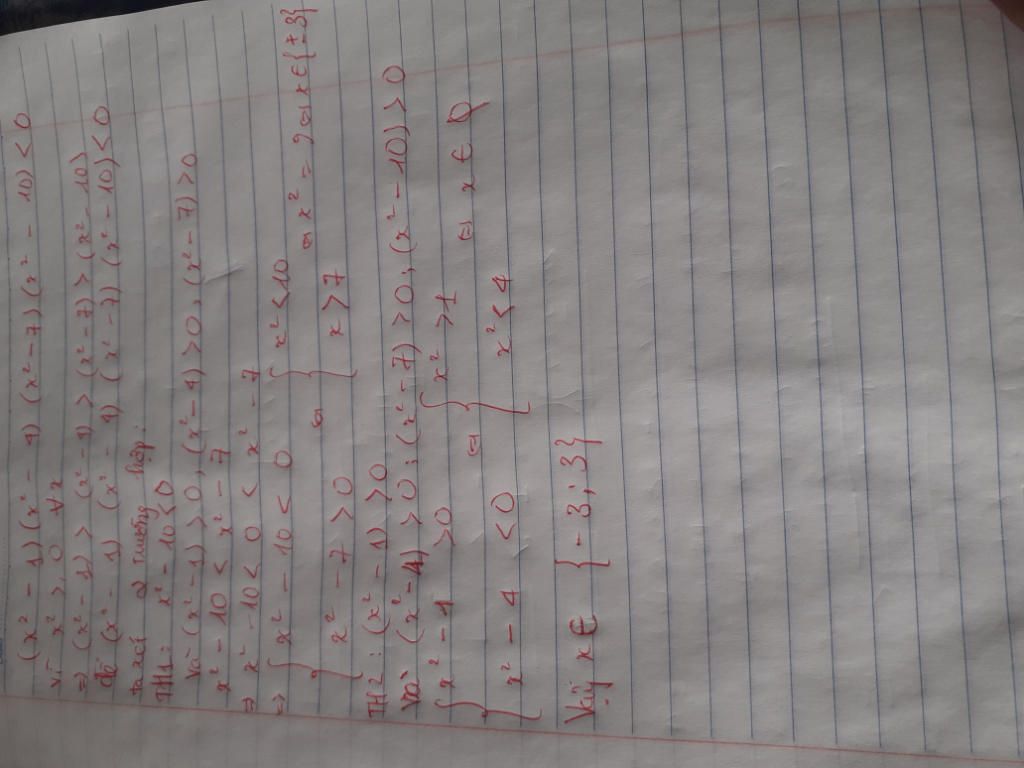 (x² - 1)(x² - 4)(x² - 7)(x² - 10) < 0
Vì x² ≥ 0 ∀x
=> (x² - 1) > (x² - 4) > (x² - 7) > (x² - 10)
để (x² - 1)(x² - 4)(x² - 7)(x² - 10) < 0
ta xét 2 trường hợp:
TH1: x² - 10 < 0
và (x² - 1) > 0, (x² - 4) > 0, (x² - 7) > 0
x² - 10 < x² - 7
=> x² - 10 < 0 < x² - 7
=> { x² - 10 < 0 ⇔ { x² < 10 ⇔ x² = 9 ⇔ x ∈ {±3}
x² - 7 > 0 x > 7
TH2: (x² - 1) > 0
và (x² - 4) > 0; (x² - 7) > 0, (x² - 10) > 0
{ x² - 1 > 0 ⇔ { x² > 1 ⇔ x ∈ Q
x² - 4 < 0 x² < 4
Vậy x ∈ {-3; 3}